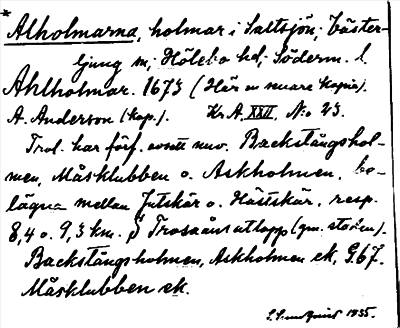 * Alholmarna, holmar i Saltsjön; Väster-
ljung sn; Hölebo hd; Söderm. l.
Ahlholmar. 1673 (Här en senare kopia).
A. Anderson (kop.). Kr.A. XXII, No 23.
Trol. har förf. avsett nuv. Backstångshol-
men, Måsklubben o. Askholmen, be-
lägna mellan Jutskär o. Hästskär, resp.
8,4 o. 9,3 km. S Trosaåns utlopp (gm. staden).
Backstångsholmen, Askholmen ek, G.67.
Måsklubben ek.
1955.